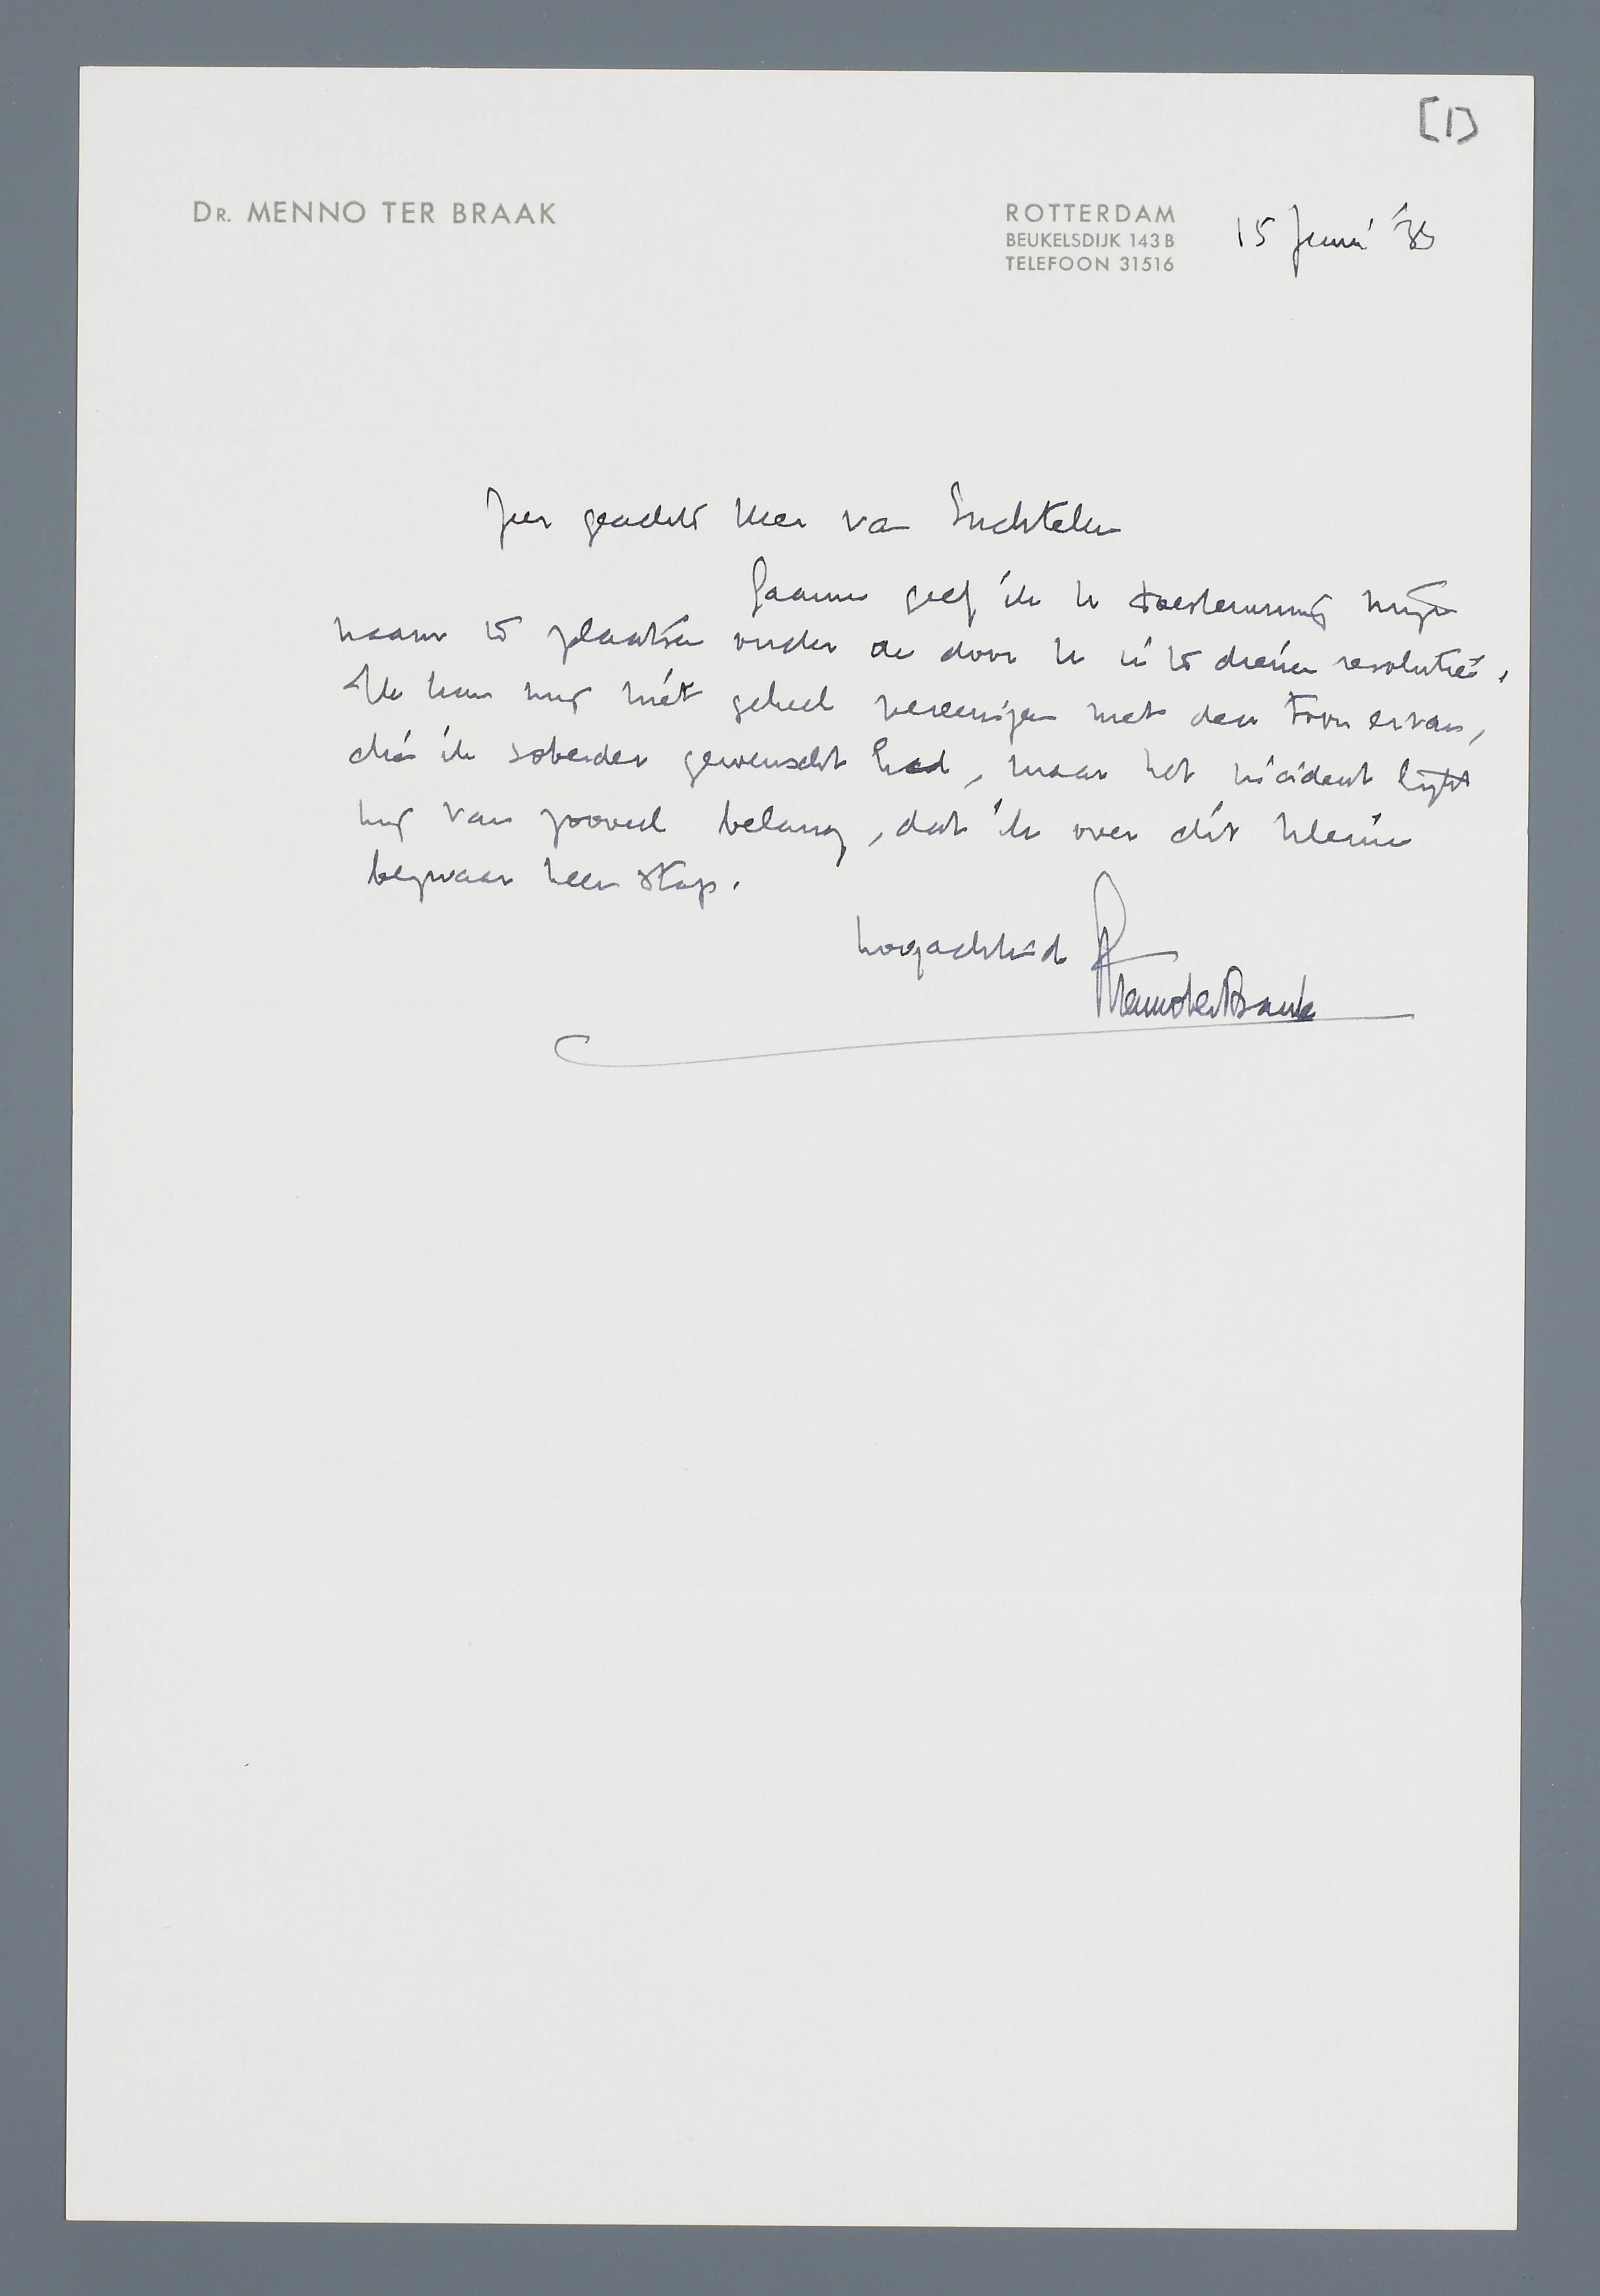 [1]
DR. MENNO TER BRAAK
ROTTERDAM
BEUKELSDIJK 143B
TELEFOON 31516
15 Juni '33
Zeer geachte Heer van Suchtelen
Gaarne geef ik U toestemming mijn
naam te plaatsen onder de door U in te dienen resolutie.
Ik kan mij niet geheel vereenigen met den vorm ervan,
die ik soberder gewenscht had, maar het incident lijkt
mij van zooveel belang, dat ik over dit kleine
bezwaar heen stap.
hoogachtend
Menno ter Braak